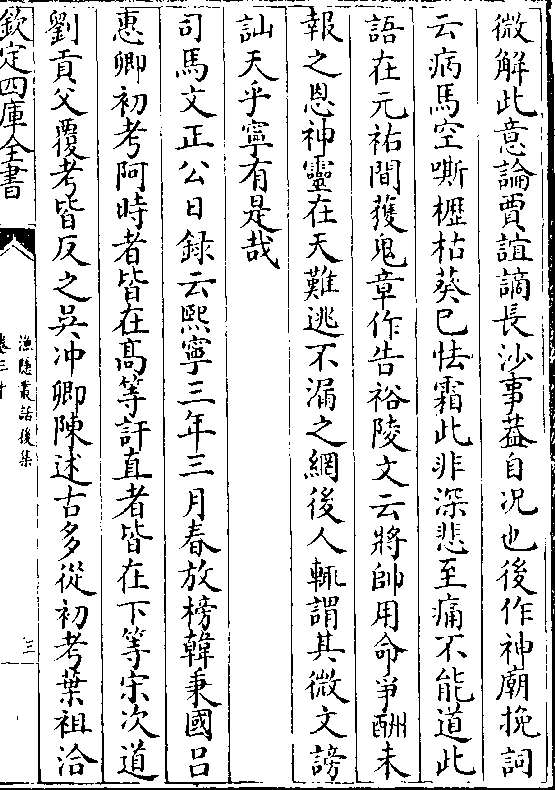 微解此意論賈誼謫長沙事葢自况也後作神廟挽詞
云病馬空嘶櫪枯葵已怯霜此非深悲至痛不能道此
語在元祐間獲鬼章作告裕陵文云將帥用命爭酬未
報之恩神靈在天難逃不漏之網後人輒謂其微文謗
訕天乎寧有是哉
司馬文正公日録云熙寧三年三月春放榜韓秉國吕
惠卿初考阿時者皆在髙等訐直者皆在下等宋次道
劉貢父覆考皆反之吳冲卿陳述古多從初考葉祖洽
欽定四庫全書
漁隱叢話後集
卷三十
三